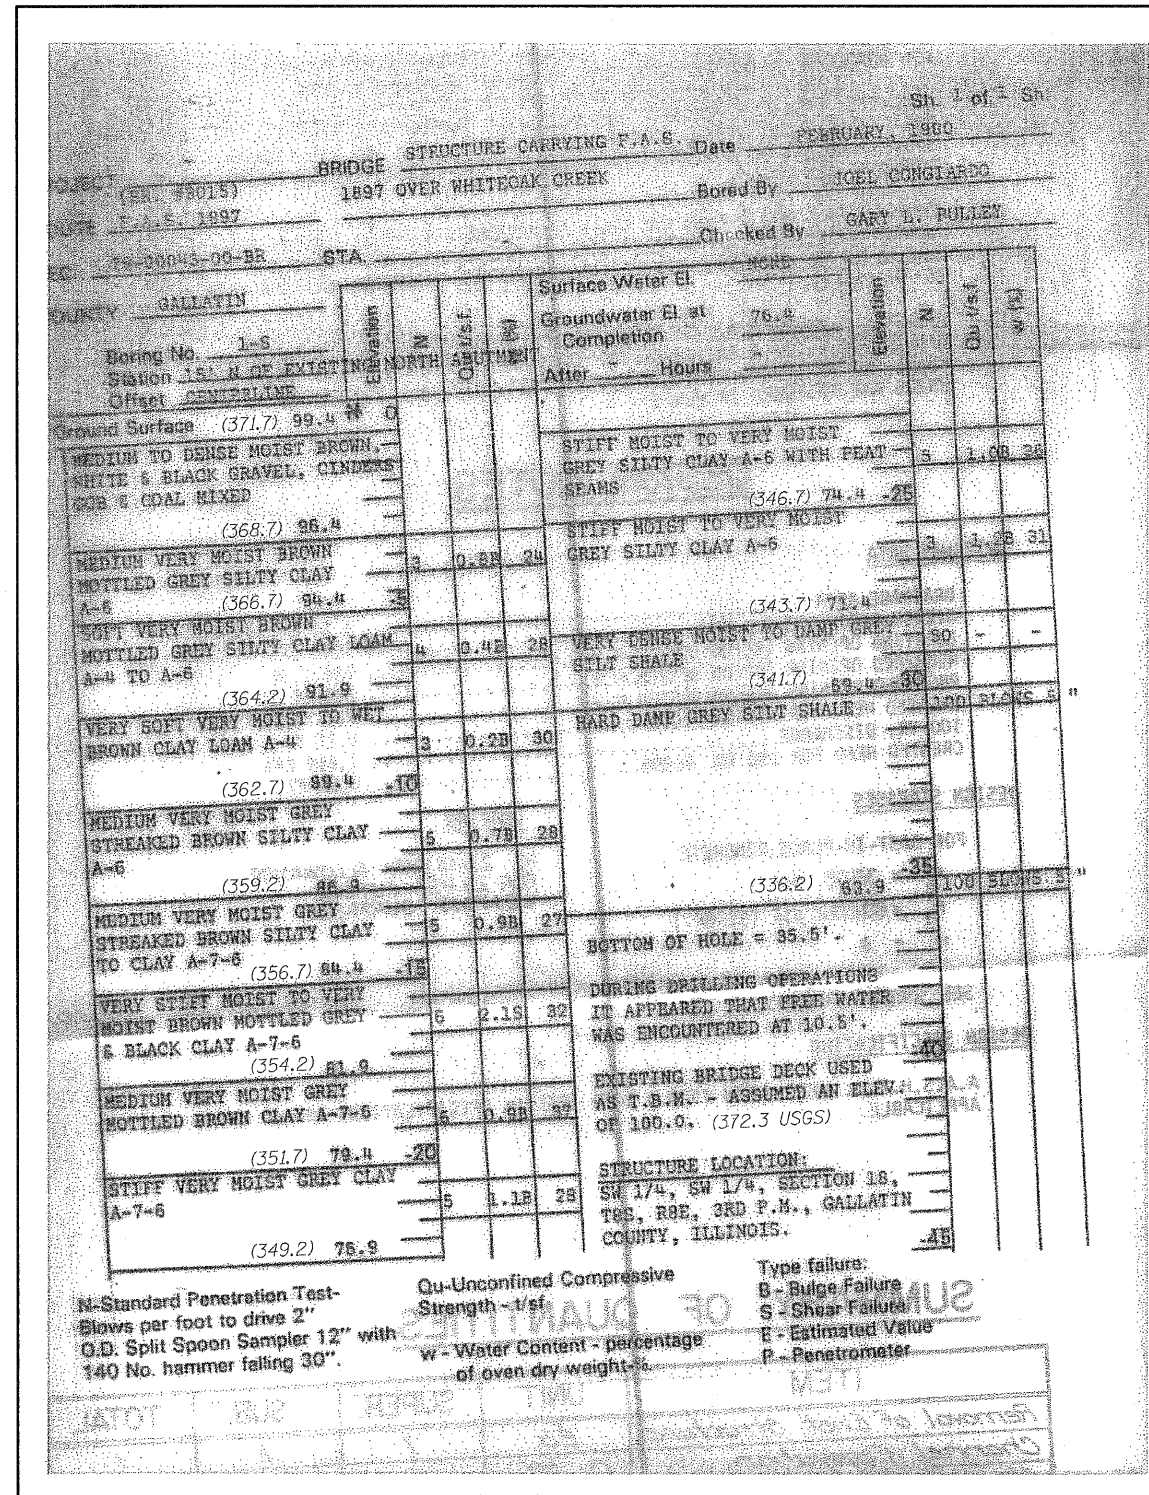 Sh. 1 of 1 Sh.
BRIDGE STRUCTURE CARRYING F.A.S. Date FEBRUARY, 1980
(SN. #3015) 1897 OVER WHITEOAK CREEK Bored By JOEL CONGIARDO
F.A.S. 1897 Checked By GARY L. PULLEY
STA. -
GALLATIN
Boring No. 1-S
Station 15' N OF EXISTING NORTH ABUTMENT
Offset CENTERLINE
Elevation N Qu t/s.f. (%)
Ground Surface (371.7) 99.4 0
MEDIUM TO DENSE MOIST BROWN,
WHITE & BLACK GRAVEL, CINDERS
GOB & COAL MIXED
(368.7) 96.4
MEDIUM VERY MOIST BROWN
MOTTLED GREY SILTY CLAY 3 0.8B 24
A-6 (366.7) 94.4 -5
SOFT VERY MOIST BROWN
MOTTLED GREY SILTY CLAY LOAM 4 0.4B 28
A-4 TO A-6
(364.2) 91.9
VERY SOFT VERY MOIST TO WET
BROWN CLAY LOAM A-4 3 0.2B 30
(362.7) 89.4 -10
MEDIUM VERY MOIST GREY
STREAKED BROWN SILTY CLAY 5 0.7B 28
A-6
(359.2) 86.9
MEDIUM VERY MOIST GREY
STREAKED BROWN SILTY CLAY 5 0.9B 27
TO CLAY A-7-6
(356.7) 84.4 -15
VERY STIFF MOIST TO VERY
MOIST BROWN MOTTLED GREY 6 2.1S 32
& BLACK CLAY A-7-6
(354.2) 81.9
MEDIUM VERY MOIST GREY
MOTTLED BROWN CLAY A-7-6 6 0.9B 32
(351.7) 79.4 -20
STIFF VERY MOIST GREY CLAY
A-7-6 5 1.1B 28
(349.2) 76.9
Surface Water El. NONE
Groundwater El. at
Completion 76.4
After - Hours -
Elevation N Qu t/s.f. w (%)
STIFF MOIST TO VERY MOIST
GREY SILTY CLAY A-6 WITH PEAT 5 1.0B 36
SEAMS (346.7) 74.4 -25
STIFF MOIST TO VERY MOIST
GREY SILTY CLAY A-6 3 31
(343.7) 71.4
VERY DENSE MOIST TO DAMP GREY 90 - -
SILT SHALE
(341.7) 69.4 -30
HARD DAMP GREY SILT SHALE 100 BLOWS 5"
-35
(336.2) 63.9 100 BLOWS 5"
BOTTOM OF HOLE = 35.5'.
DURING DRILLING OPERATIONS
IT APPEARED THAT FREE WATER
WAS ENCOUNTERED AT 10.5'.
-40
EXISTING BRIDGE DECK USED
AS T.B.M. - ASSUMED AN ELEV.
OF 100.0. (372.3 USGS)
STRUCTURE LOCATION:
SW 1/4, SW 1/4, SECTION 18,
T8S, R8E, 3RD P.M., GALLATIN
COUNTY, ILLINOIS.
-45
N-Standard Penetration Test-
Blows per foot to drive 2"
O.D. Split Spoon Sampler 12" with
140 No. hammer falling 30".
Qu-Unconfined Compressive
Strength - t/sf
w - Water Content - percentage
of oven dry weight-%.
Type failure:
B - Bulge Failure
S - Shear Failure
E - Estimated Value
P - Penetrometer